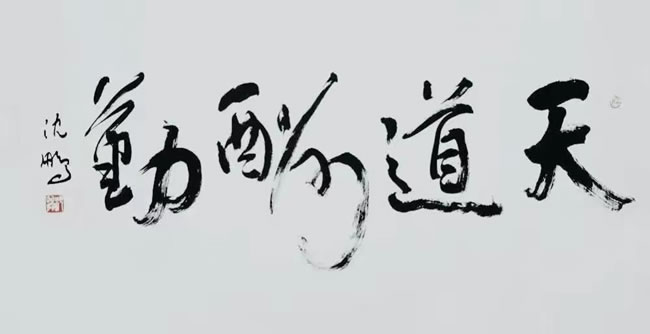 天道酬勤
沈鹏